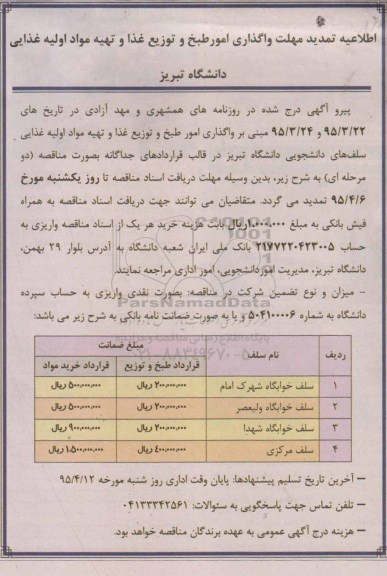 اطلاعیه تمدید مهلت واگذاری امورطبخ و توزیع غذا و تهیه مواد اولیه غذایی
دانشگاه تبریز
پیرو آگهی درج شده در روزنامه های همشهری و مهد آزادی در تاریخ های
۹۵/۳/۲۲ و ۹۵/۳/۲۴ مبنی بر واگذاری امور طبخ و توزیع غذا و تهیه مواد اولیه غذایی
سلف‌های دانشجویی دانشگاه تبریز در قالب قراردادهای جداگانه بصورت مناقصه (دو
مرحله ای) به شرح زیر، بدین وسیله مهلت دریافت اسناد مناقصه تا روز یکشنبه مورخ
۹۵/۴/۶ تمدید می گردد. متقاضیان می توانند جهت دریافت اسناد مناقصه به همراه
فیش بانکی به مبلغ ۱،۰۰۰،۰۰۰ریال بابت هزینه خرید هر یک از اسناد مناقصه واریزی به
حساب ۲۱۷۷۲۲۰۴۲۳۰۰۵ بانک ملی ایران شعبه دانشگاه به آدرس بلوار ۲۹ بهمن،
دانشگاه تبریز، مدیریت اموردانشجویی، امور اداری مراجعه نمایند.
- میزان و نوع تضمین شرکت در مناقصه: بصورت نقدی واریزی به حساب سپرده
دانشگاه به شماره ۵۰۴۱۰۰۰۰۶ و یا به صورت‌ضمانت نامه بانکی به شرح زیر می باشد:
ParsNamadData
۰۲۱-۸۸۳۴۹۶۷۰-۵
ردیف نام سلف مبلغ ضمانت
قرارداد طبخ و توزیع قرارداد خرید مواد
۱ سلف خوابگاه شهرک امام ۲۰۰,۰۰۰,۰۰۰ ریال ۵۰۰,۰۰۰,۰۰۰ ریال
۲ سلف خوابگاه ولیعصر ۲۰۰,۰۰۰,۰۰۰ ریال ۵۰۰,۰۰۰,۰۰۰ ریال
۳ سلف خوابگاه شهدا ۲۰۰,۰۰۰,۰۰۰ ریال ۹۰۰,۰۰۰,۰۰۰ ریال
۴ سلف مرکزی ۴۰۰,۰۰۰,۰۰۰ ریال ۱,۵۰۰,۰۰۰,۰۰۰ ریال
— آخرین تاریخ تسلیم پیشنهادها: پایان وقت اداری روز شنبه مورخه ۹۵/۴/۱۲
— تلفن تماس جهت پاسخگویی به سئوالات: ۰۴۱۳۳۳۴۲۵۶۱
— هزینه درج آگهی عمومی به عهده برندگان مناقصه خواهد بود.